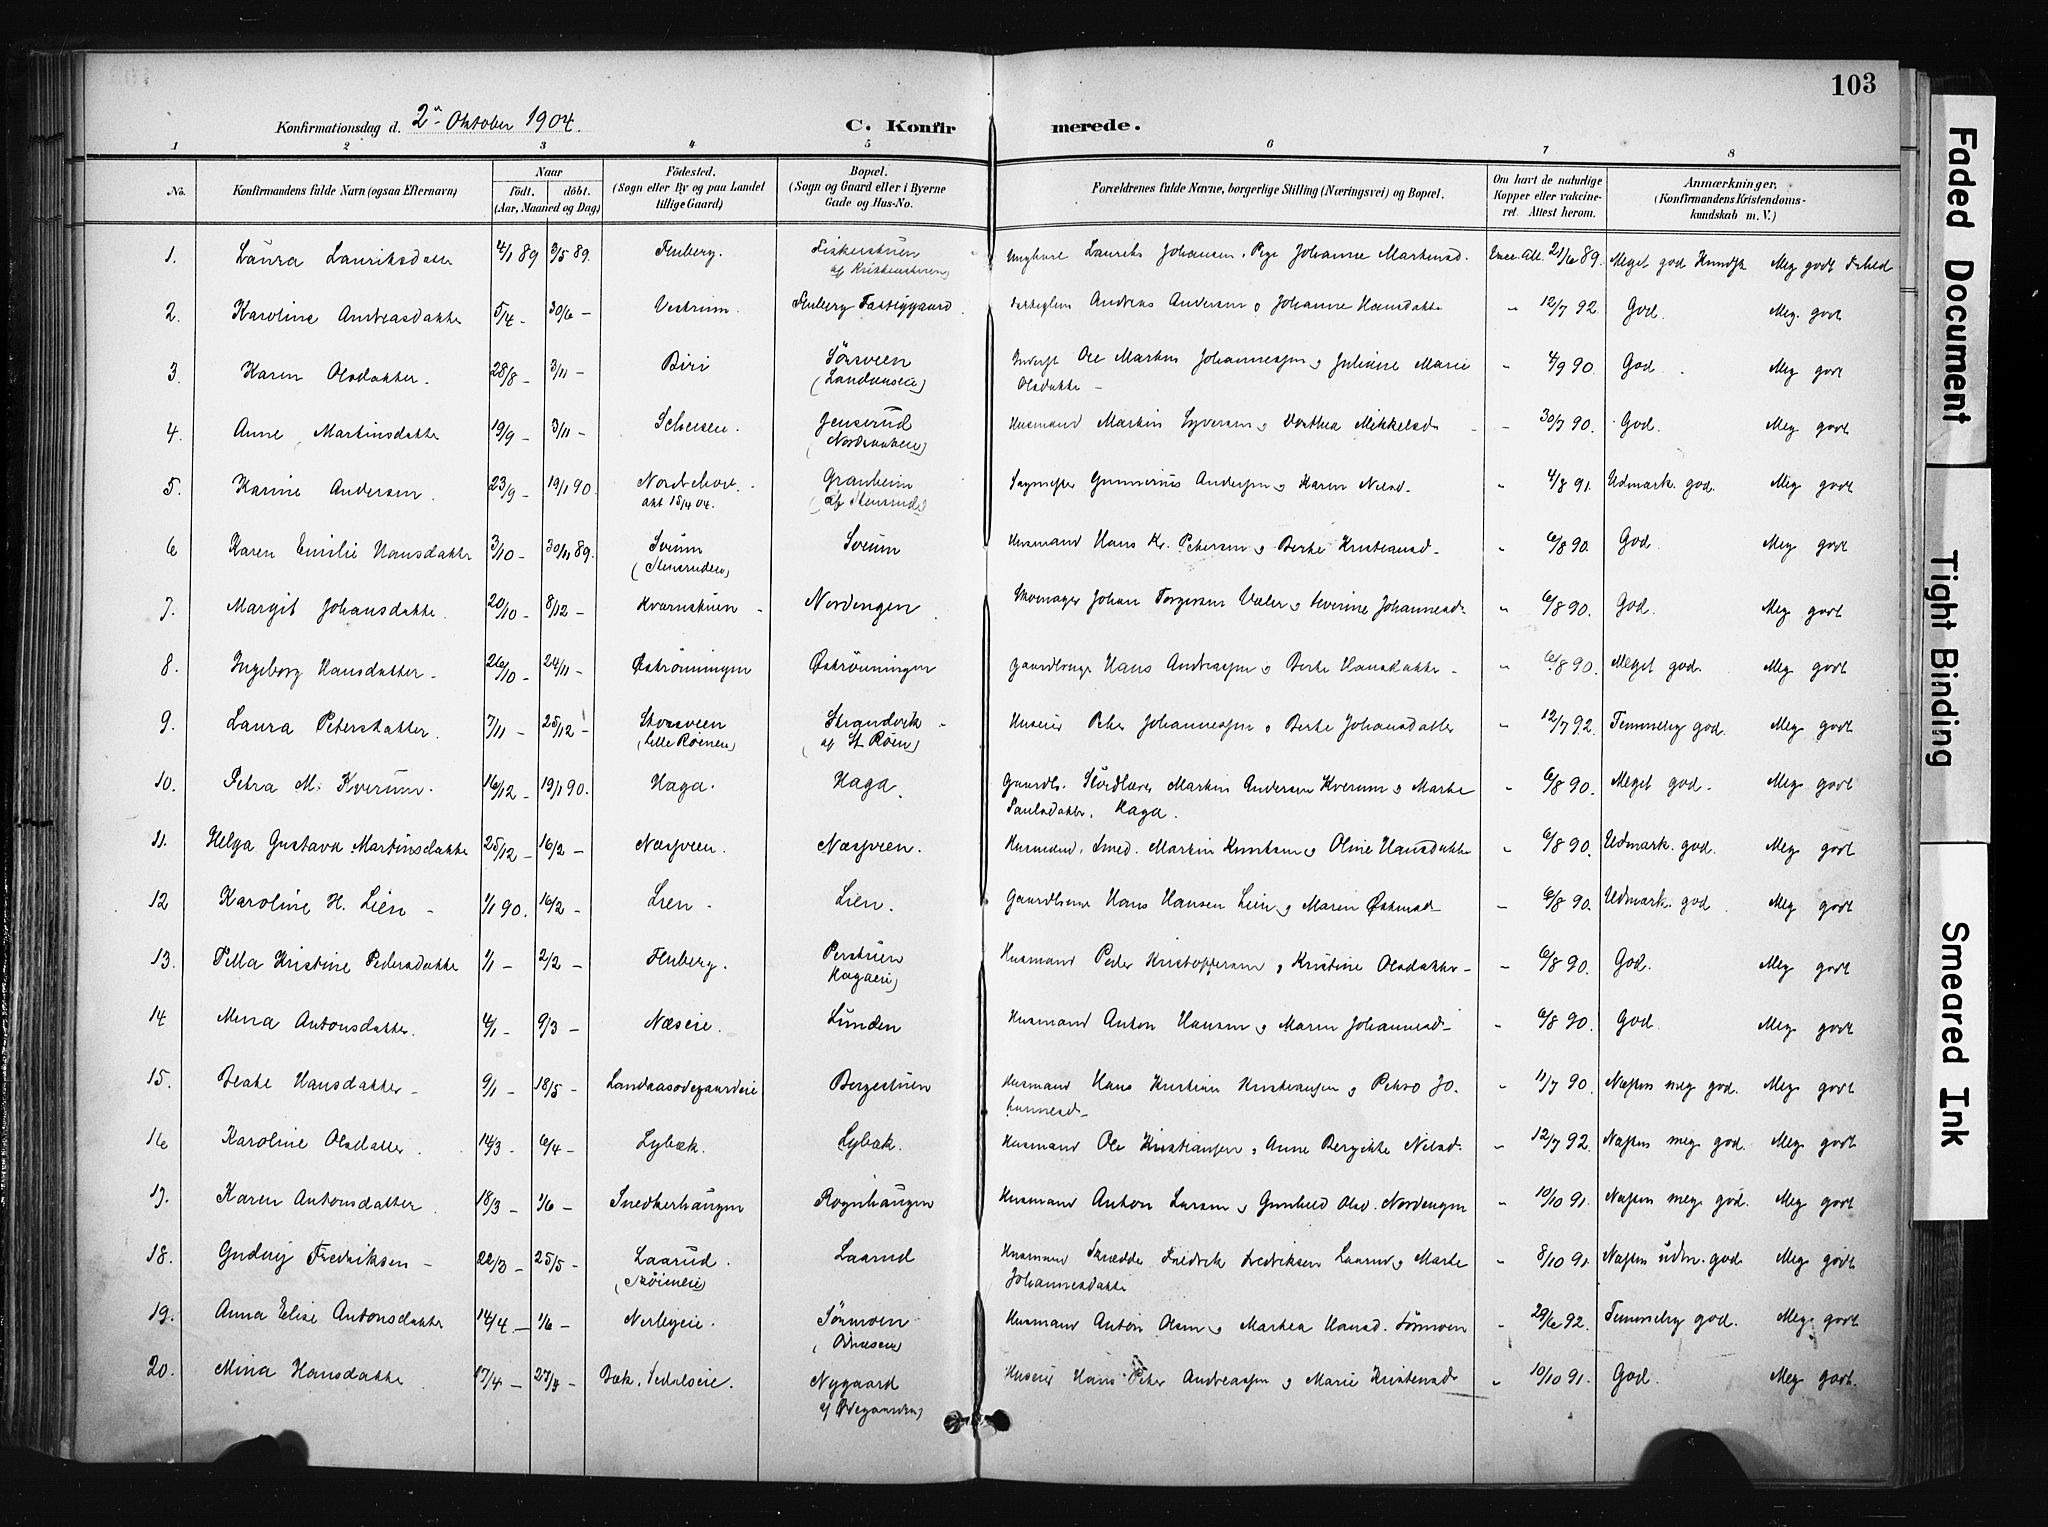 103
Konfirmationsdag d. 2den Oktober 1904.
C. Konfirmerede.
1 2 3 4 5 6 7 8
No. Konfirmandens fulde Navn (ogsaa Efternavn) Naar födt. döbt. (Aar, Maaned og Dag) Födested. (Sogn eller By og paa Landet tillige Gaard) Bopæl. (Sogn og Gaard eller i Byerne Gade og Hus-No. Forældrenes fulde Navne, borgerlige Stilling (Næringsvei) og Bopæl. Om havt de naturlige Kopper eller vakcineret. Attest herom. Anmærkninger, (Konfirmandens Kristendomskundskab m. V.)
1. Laura Lauriksdatter 4/1 89 3/5 89. Fluberg. Fiskerstuen Ungkarl Laurits Johansen, Pige Johanne Martinsd. Vacc. Att. 21/6 89. Meget god Kundsk Meg godt Forhold
af Kristianstuen)
2. Karoline Andreasdatter 5/4 - 30/6 - Vestrum. Fluberg Fattiggaard. Andreas Andersen & Johanne Hansdatter " 12/7 92. God. Meg. godt
3. Karen Olsdatter. 28/8 - 3/11 - Biri Sörsveen Inderst Ole Martin Johannessen & Juliane Marie " 4/9 90. God. Meg godt
(Landaaseie) Olsdatter -
4. Anne Martinsdatter 19/9 - 3/11 - Jensrud Husmand Martin Syversen & Dorthea Mikkelsd - " 30/7 90. God. Meg godt
5. Karine Andersen. 23/9 - 19/1 90. Granheim Gunnerius Andersen & Karen Nilsd - " 4/8 91. Udmark. god. Meg godt
att 15/4 04. (af Stensrud)
6 Karen Emilie Hansdatter 3/10 - 30/11 89. Sveum Sveum Husmand Hans Kr. Petersen & Berte Kristiansd - " 6/8 90. God. Meg godt
(Stensrudeie)
7. Margit Johansdatter. 20/10 - 8/12 - Kvernstuen - Nordengen. Skomager Johan Torgersen Væler & Severine Johannesd - " 6/8 90. God. Meg godt
8. Ingeborg Hansdatter - 26/10 - 24/11 - Øströnningen Øströnningen Gaardbruger Hans Andreassen & Berte Hansdatter - " 6/8 90. Meget god. Meg godt
9. Laura Petersdatter. 7/11 - 25/12 - Skarsveen Strandvik - Huseier Peter Johannessen & Berte Johansdatter " 12/7 92. Temmelig god. Meg godt
(Lille Röinen) af St Röen)
10. Petra M. Kverum. 16/12 - 19/1 90. Haga. Haga. Gaardb. Stordlæs Martin Andersen Kverum & Marte " 6/8 90. Meget god. Meg godt
Paulsdatter, Haga.
11. Helga Gustava Martinsdatter 25/12 - 16/2 - Næsveen. Næsveen. Husmand, Smed. Martin Knutsen & Oline Hansdatter " 6/8 90. Udmark. god. Meg godt
12 Karoline H. Lien - 1/1 90. 16/2 - Lien. Lien. Hans Hansen Lien & Maren Østensd - " 6/8 90. Udmark. god. Meg godt
13. Pella Kristine Pedersdatter 1/1 - 2/2 - Fluberg. Perstuen Husmand Peder Kristoffersen & Kristine Olsdatter - " 6/8 90. God. Meg godt
Hagaeie)
14 Mina Antonsdatter. 4/1 - 9/3 - Næseie. Lunden Husmand Anton Hansen & Maren Johannesd - " 6/8 90. God. Meg godt
15. Beate Hansdatter - 9/1 - 18/5 - Landaasödegaardeie Bergestuen Husmand Hans Kristian Kristiansen & Petra Jo- " 11/7 90. Næsten meg god. Meg godt
hannesd -
16 Karoline Olsdatter. 14/3 - 6/4 - Lybæk. Lybæk. Husmand Ole Kristiansen & Anne Bergitte Nilsd. " 12/7 92. Næsten meg god. Meg godt
17. Karen Antonsdatter. 18/3 - 1/6 - Snedkerhaugen Rognhaugen Husmand Anton Larsen & Gunhild Olsd. Nordengen " 10/10 91. Næsten meg god. Meg godt
18. Gudrig Fredriksen - 22/3 - 25/5 - Laarud. Laarud Husmand Skrædder Fredrik Fredriksen Laarud & Marte " 8/10 91. Næsten udm. god Meg godt
Johannesdatter
19. Anna Elise Antonsdatter 14/4 - 1/6 - Nerbyeie. Sönmoen Husmand Anton Olsen & Martea Hansd. Sönmoen " 29/6 92. Temmelig god. Meg godt
(Odnæseie)
20. Mina Hansdatter. 17/4 - 27/7 - Bæk, Nygaard Huseier Hans Peter Andreassen & Marie Kristensd - " 10/10 91. God. Meg godt.
af Ødegaarden)
Faded Document
Tight Binding
Smeared Ink